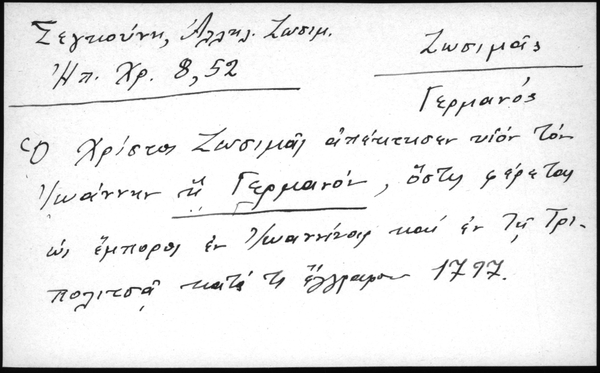 Σεγκούνη, Ἀλληλ. Ζωσιμ.
Ἠπ. Χρ. 8, 52
Ζωσιμᾶς
Γερμανός
Ὁ Χρίστος Ζωσιμᾶς ἀπέκτησεν υἱόν τόν
Ἰωάννην ἤ Γερμανόν, ὅστις φέρεται
ὡς ἔμπορος ἐν Ἰωαννίνοις καί ἐν τῇ Τρι-
πολιτσᾷ κατά τι ἔγγραφον 1797.